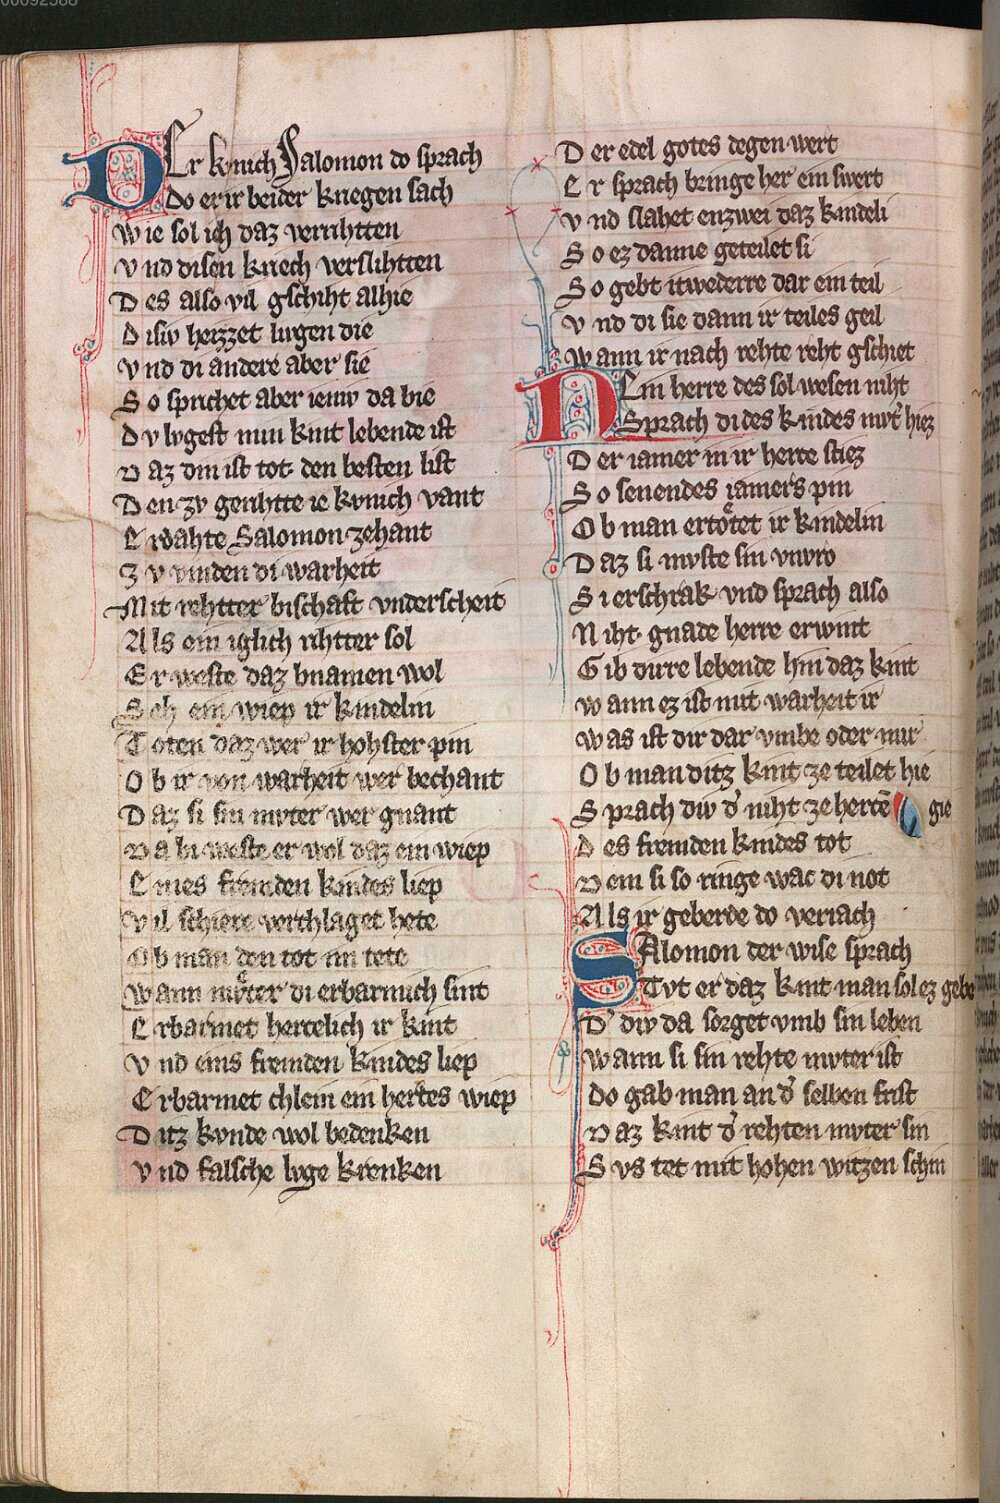 00092588
DEr kvnich Salomon do sprach
Do er ir beider kriegen sach
Wie sol ich daz verrihtten
Vnd disen kriech verslihtten
Des also vil gschiht alhie
Disiv heizzet livgen die
Vnd di andere aber sie
So sprichet aber ieniv da bie
Dv lvgest min kint lebende ist
Daz din ist tot den besten list
Den zv gerihtte ie kvnich vant
Erdahte Salomon zehant
Zv vinden di warheit
Mit rehtter bischaft vnderscheit
Als ein iglich rihtter sol
Er weste daz bnamen wol
Seh ein wiep ir kindelin
Toten daz wer ir hohster pin
Ob ir von warheit wer bechant
Daz si sin mvter wer gnant
Da bi weste er wol daz ein wiep
Eines fremden kindes liep
Vil schiere verchlaget hete
Ob man den tot im tete
Wann mvͤter di erbarmich sint
Erbarmet hercelich ir kint
Vnd eins fremden kindes liep
Erbarmet chlein ein hertes wiep
Ditz kvnde wol bedenken
Vnd falsche lvge krenken
Der edel gotes degen wert
Er sprach bringe her ein swert
Vnd slahet enzwei daz kindeli
So ez danne geteilet si
So gebt itwederre dar ein teil
Vnd di sie dann ir teiles geil
Wann ir nach rehte reht gschiet
NEin herre des sol wesen niht
Sprach di des kindes mvt' hiez
Der iamer in ir herce stiez
So senendes iamers pin
Ob man ertoͤtet ir kindelin
Daz si mvste sin vnvro
Si erschrak vnd sprach also
Niht gnade herre erwint
Gib dirre lebende hin daz kint
Wann ez ist mit warheit ir
Was ist dir dar vmbe oder mir
Ob man ditz kint ze teilet hie
Sprach div d' niht ze hercē gie
Des fremden kindes tot
Dem si so ringe wac di not
Als ir geberde do veriach
SAlomon der wise sprach
Tvt er daz kint man sol ez gebe
D' div da sorget vmb sin leben
Wann si sin rehte mvter ist
Do gab man an d' selben frist
Daz kint d' rehten mvter sin
Svs tet mit hohen witzen schin